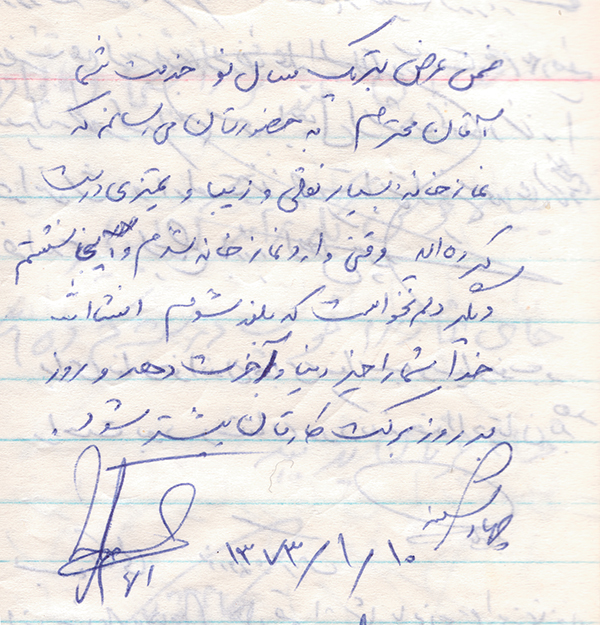 ضمن عرض تبریک سال نو خدمت شما
آقای محترم به حضورتان می رسانم که
نمازخانه بسیار نقلی و زیبا و تمیزی درست
کرده‌اید وقتی وارد نمازخانه شدم و اینجا نشستم
دیگر دلم نخواست که بلند شوم انشاالله
خدا شما را خیر دنیا و آخرت دهد و روز
به روز برکت کارتان بیشتر شود.
۱۳۷۳/۱/۱۰